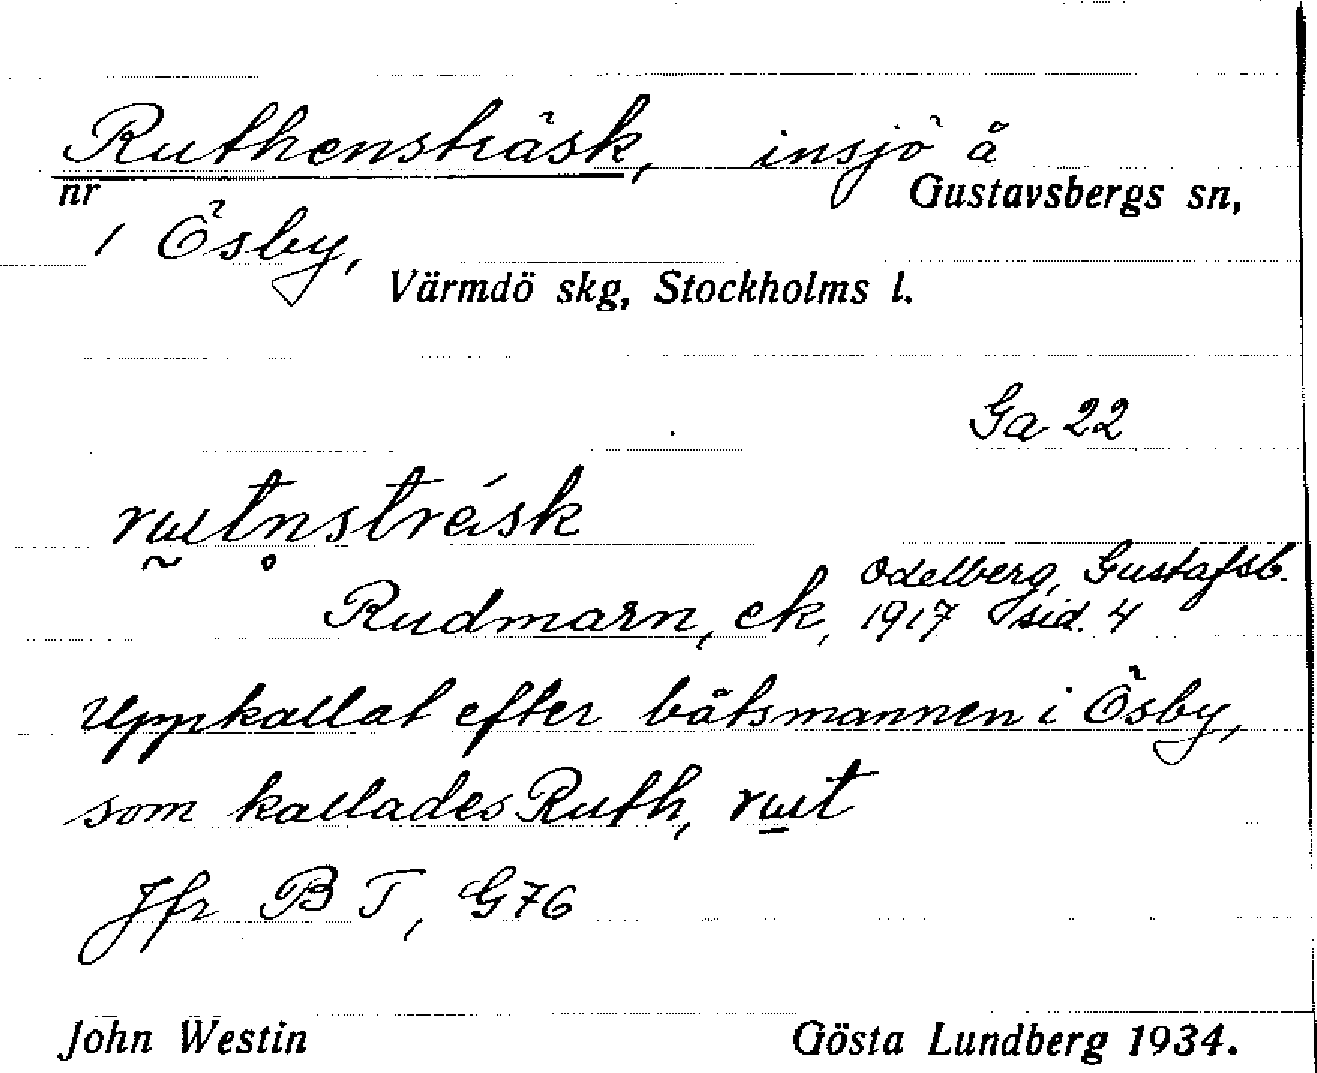 Ruthensträsk, insjö å
nr Gustavsbergs sn,
1 Ösby,
Värmdö skg, Stockholms l.
Ga 22
Rudmarn, ek, Odelberg, Gustafsb.
1917 sid. 4
Uppkallat efter båtsmannen i Ösby,
som kallades Ruth, rut
Jfr BT, G76
John Westin Gösta Lundberg 1934.